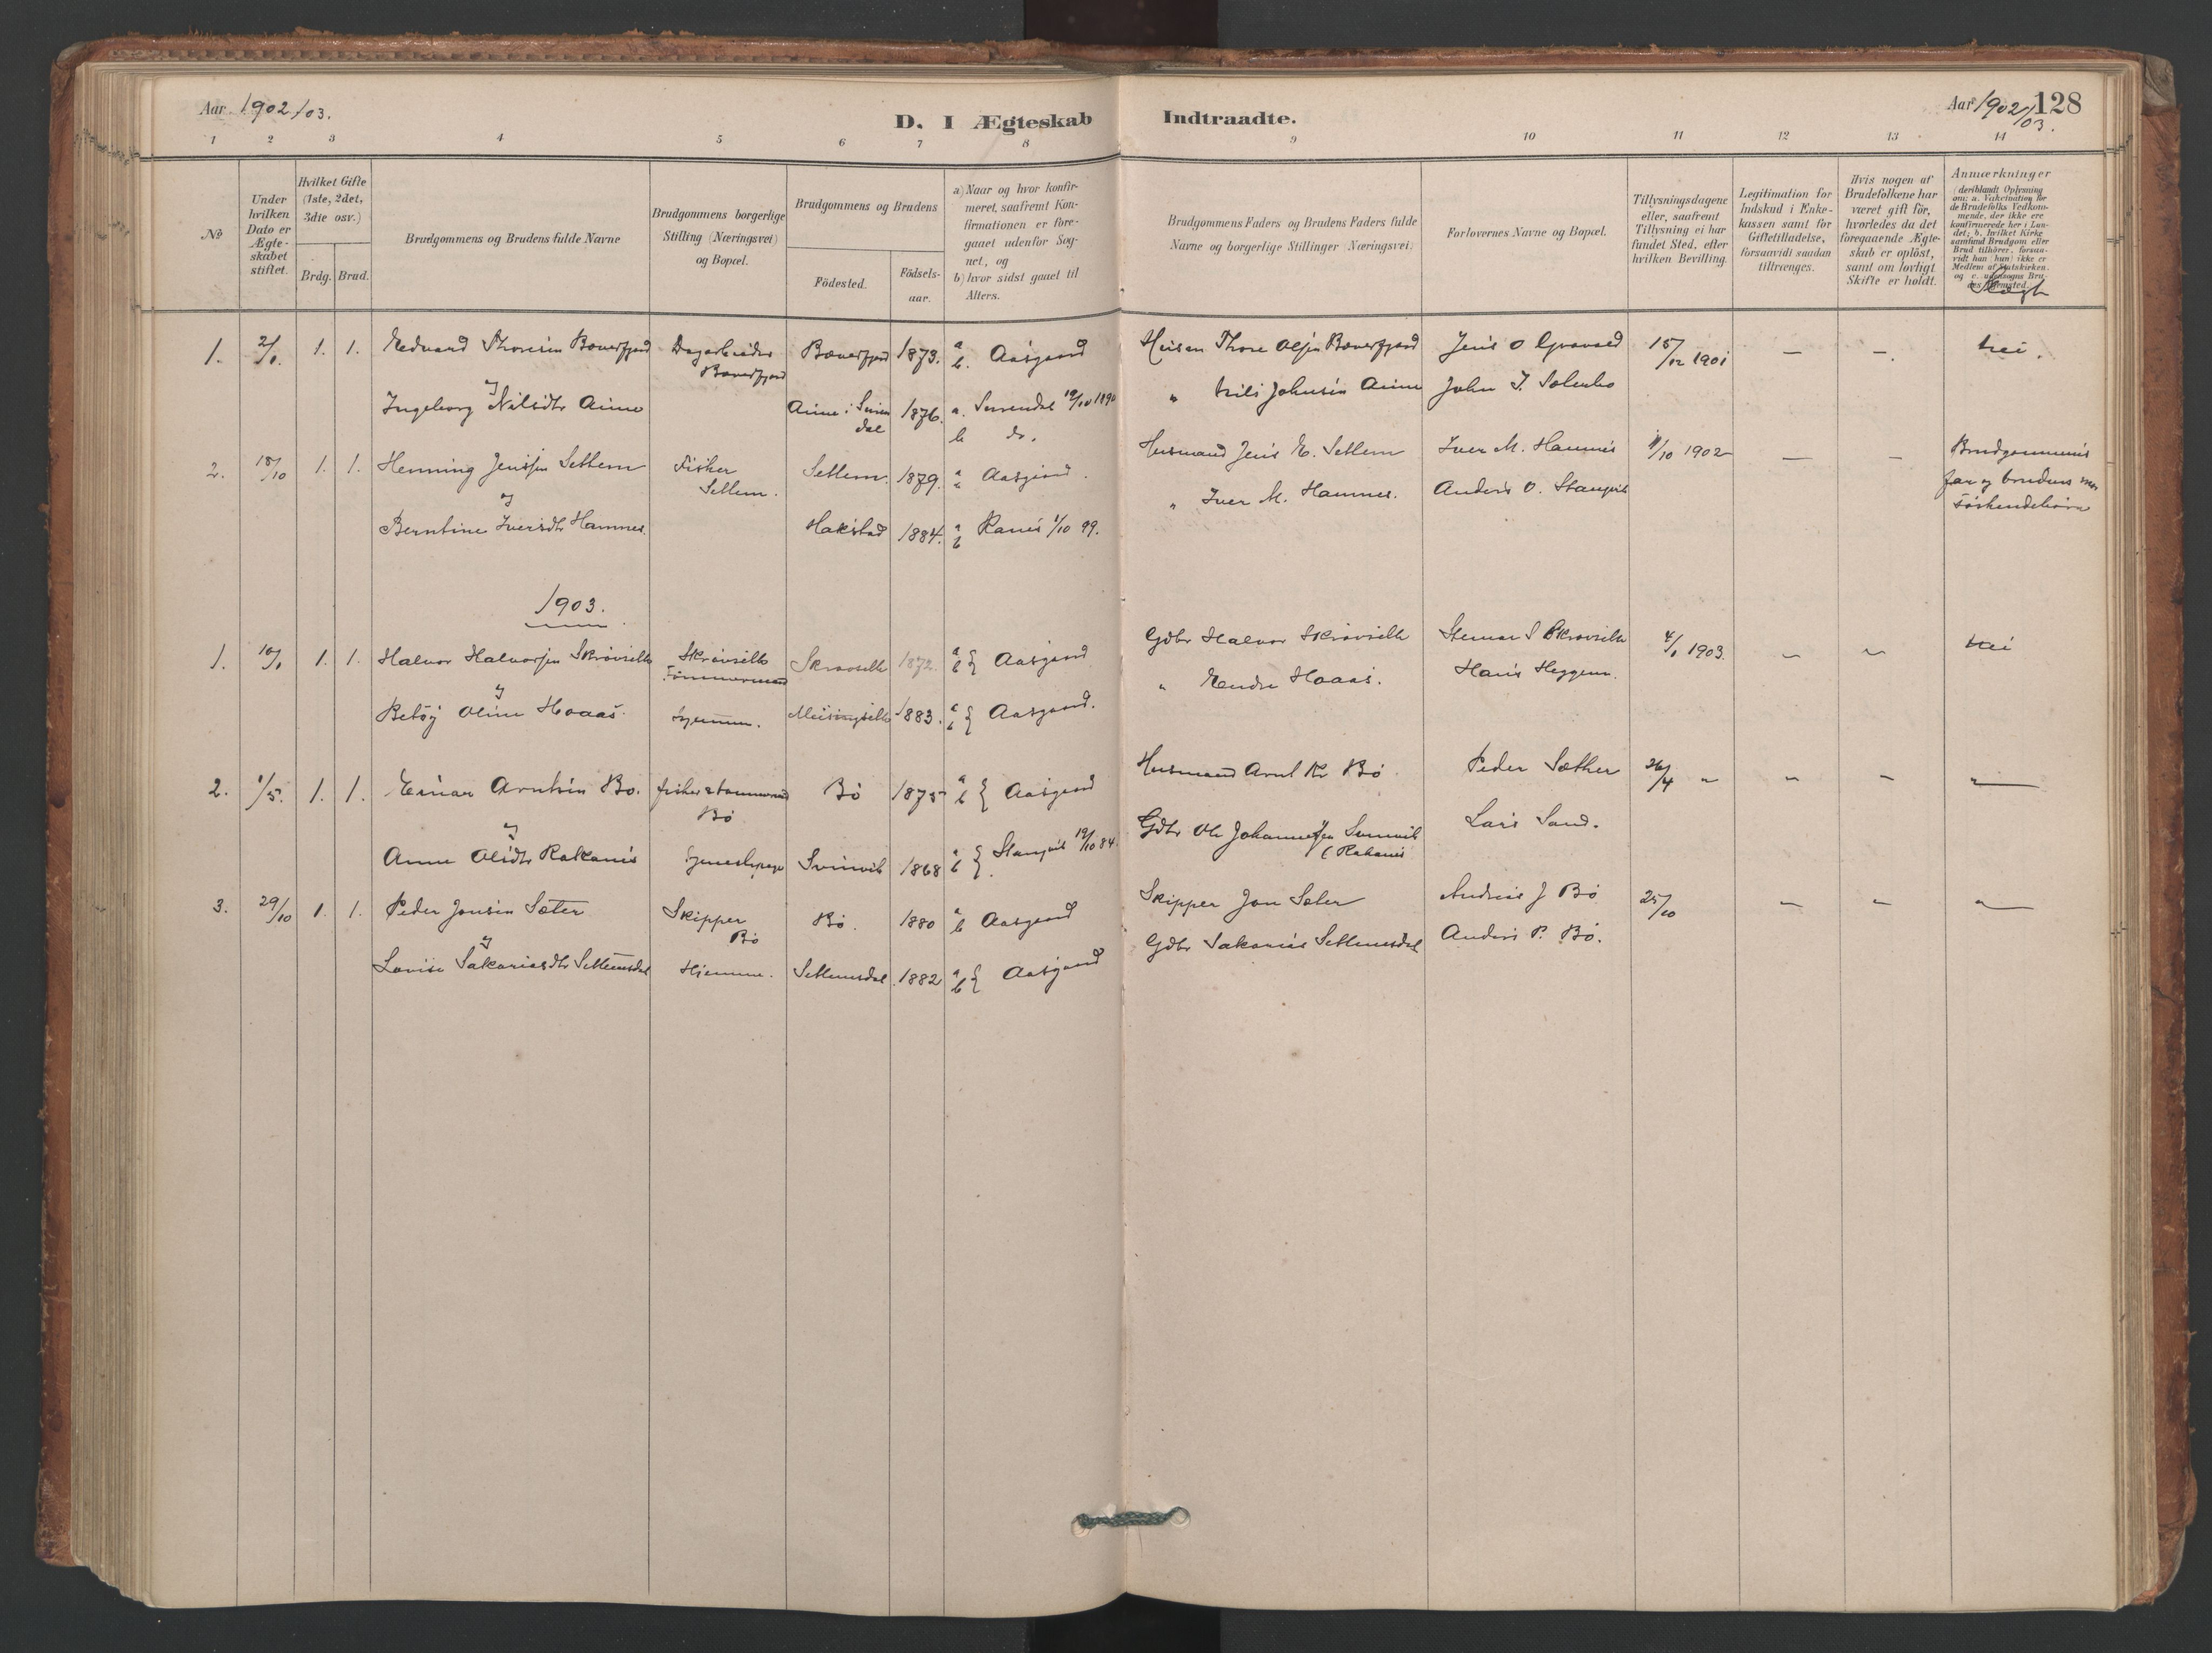 Aar 1902/03.
D. I Ægteskab Indtraadte.
Aar 1902/03. 128
1 2 3 4 5 6 7 8 9 10 11 12 13 14
No
Under hvilken Dato er Ægteskabet stiftet.
Hvilket Gifte (1ste, 2det, 3die osv.)
Brdg. Brud.
Brudgommens og Brudens fulde Navne
Brudgommens borgerlige Stilling (Næringsvei) og Bopæl.
Brudgommens og Brudens
Födested. Födselsaar.
a) Naar og hvor konfirmeret, saafremt Konfirmationen er foregaaet udenfor Sognet, og
b) hvor sidst gaaet til Alters.
Brudgommens Faders og Brudens Faders fulde Navne og borgerlige Stillinger (Næringsvei)
Forlovernes Navne og Bopæl.
Tillysningsdagene eller, saafremt Tillysning ei har fundet Sted, efter hvilken Bevilling.
Legitimation for Indskud i Enkekassen samt for Giftetilladelse, forsaavidt saadan tiltrænges.
Hvis nogen af Brudefolkene har været gift för, hvorledes da det foregaaende Ægteskab er oplöst, samt om lovligt Skifte er holdt.
Anmærkninger
(deriblandt Oplysning om: a. Vakcination for de Brudefolks Vedkommende, der ikke ere konfirmerede her i Landet; b. hvilket Kirkesamfund Brudgom eller Brud tilhörer, forsaavidt han (hun) ikke er Medlem af Statskirken, og c. udensogns Brudes Hjemsted.
Slægt
1. 2/1. 1. 1. Edvard Thoresen Bæverfjord Dagarbeider Bæverfjord Bæverfjord 1873. a. b. Aasgaard Husm Thore Olsen Bæverfjord Jens O 15/12 1901 — — nei.
og
Ingeborg Nilsdtr Aune 1876. a. Surendal 1890 " Nils Johnsen Aune John
b do.
2. 18/10 1. 1. Henning Jensen Settem Fisker Settem. Settem. 1879. a Aasgaard. Husmand Jens E. Settem Iver M. Hamnes 1902 — — Brudgommens
og
far og brudens mor
Berntine Iversdtr Hamnes. Hakstad 1884. a b Ranes 1/10 99. " Iver M. Hamnes. Anders O. Stangvik
Söskendebörn
1903.
1. 10/1 1. 1. Halvor Halvorsen Skrövseth Skrövseth Tömmermand Skrovseth 1872. a b } Aasgaard Gdbr Halvor Skrövseth S Skrövseth 4/1 1903. — " nei
og
Betsy Oline Hoaas. hjemme. 1883. a b } Aasgaard. " Endre Hoaas. Hans Heggem.
2. 1/5. 1. 1. Einar Arntsen Bö. fisker & tömmermand Bö Bö 1875 a b } Aasgaard Husmand Arnt Kr Bö Peder Sæther 26/4 " " " "
og
Anne Olsdtr Rakanes Svinvik 1868 a b } Stangvik 19/10 84. Gdbr Ole Johannesen Svinvik (Rakanes Lars Sand.
3. 29/10 1. 1. Peder Jonsen Sæter Skipper Bö Bö. 1880 a b Aasgaard Skipper Jon Sæter Andreas J Bö 25/10 " " "
og
Lovise Sakariasdtr Settemsdal Hjemme. Settemsdal. 1882 a b } Aasgaard Gdbr Sakarias Settemsdal Anders P. Bö.